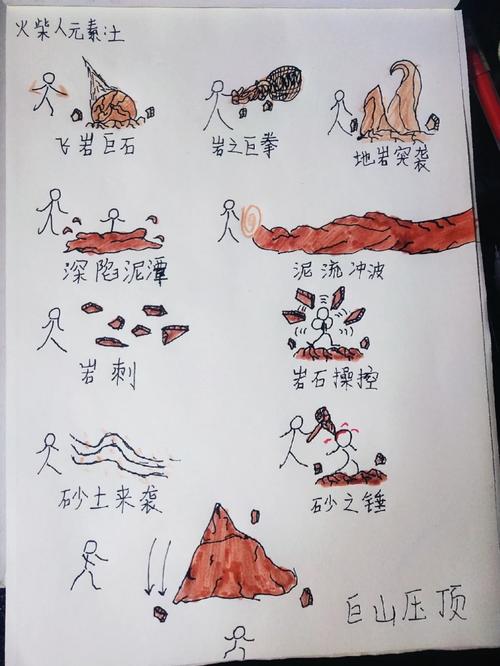 火柴人元素:土
飞岩巨石
岩之巨拳
地岩突袭
深陷泥潭
泥流冲波
岩刺
岩石操控
砂土来袭
砂之锤
巨山压顶